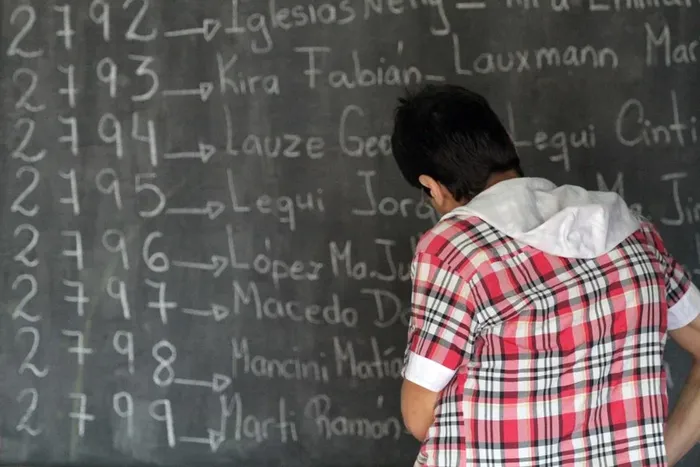 2792→ Iglesias Neny_
2793→ Kira Fabián_ Lauxmann Mar
2794→ Lauze Geo Lequi Cinti
2795→ Lequi Jor Ji
2796→ López Ma. Ju
2797→ Macedo Da
2798→ Mancini Mati
2799→ Marti Ramón